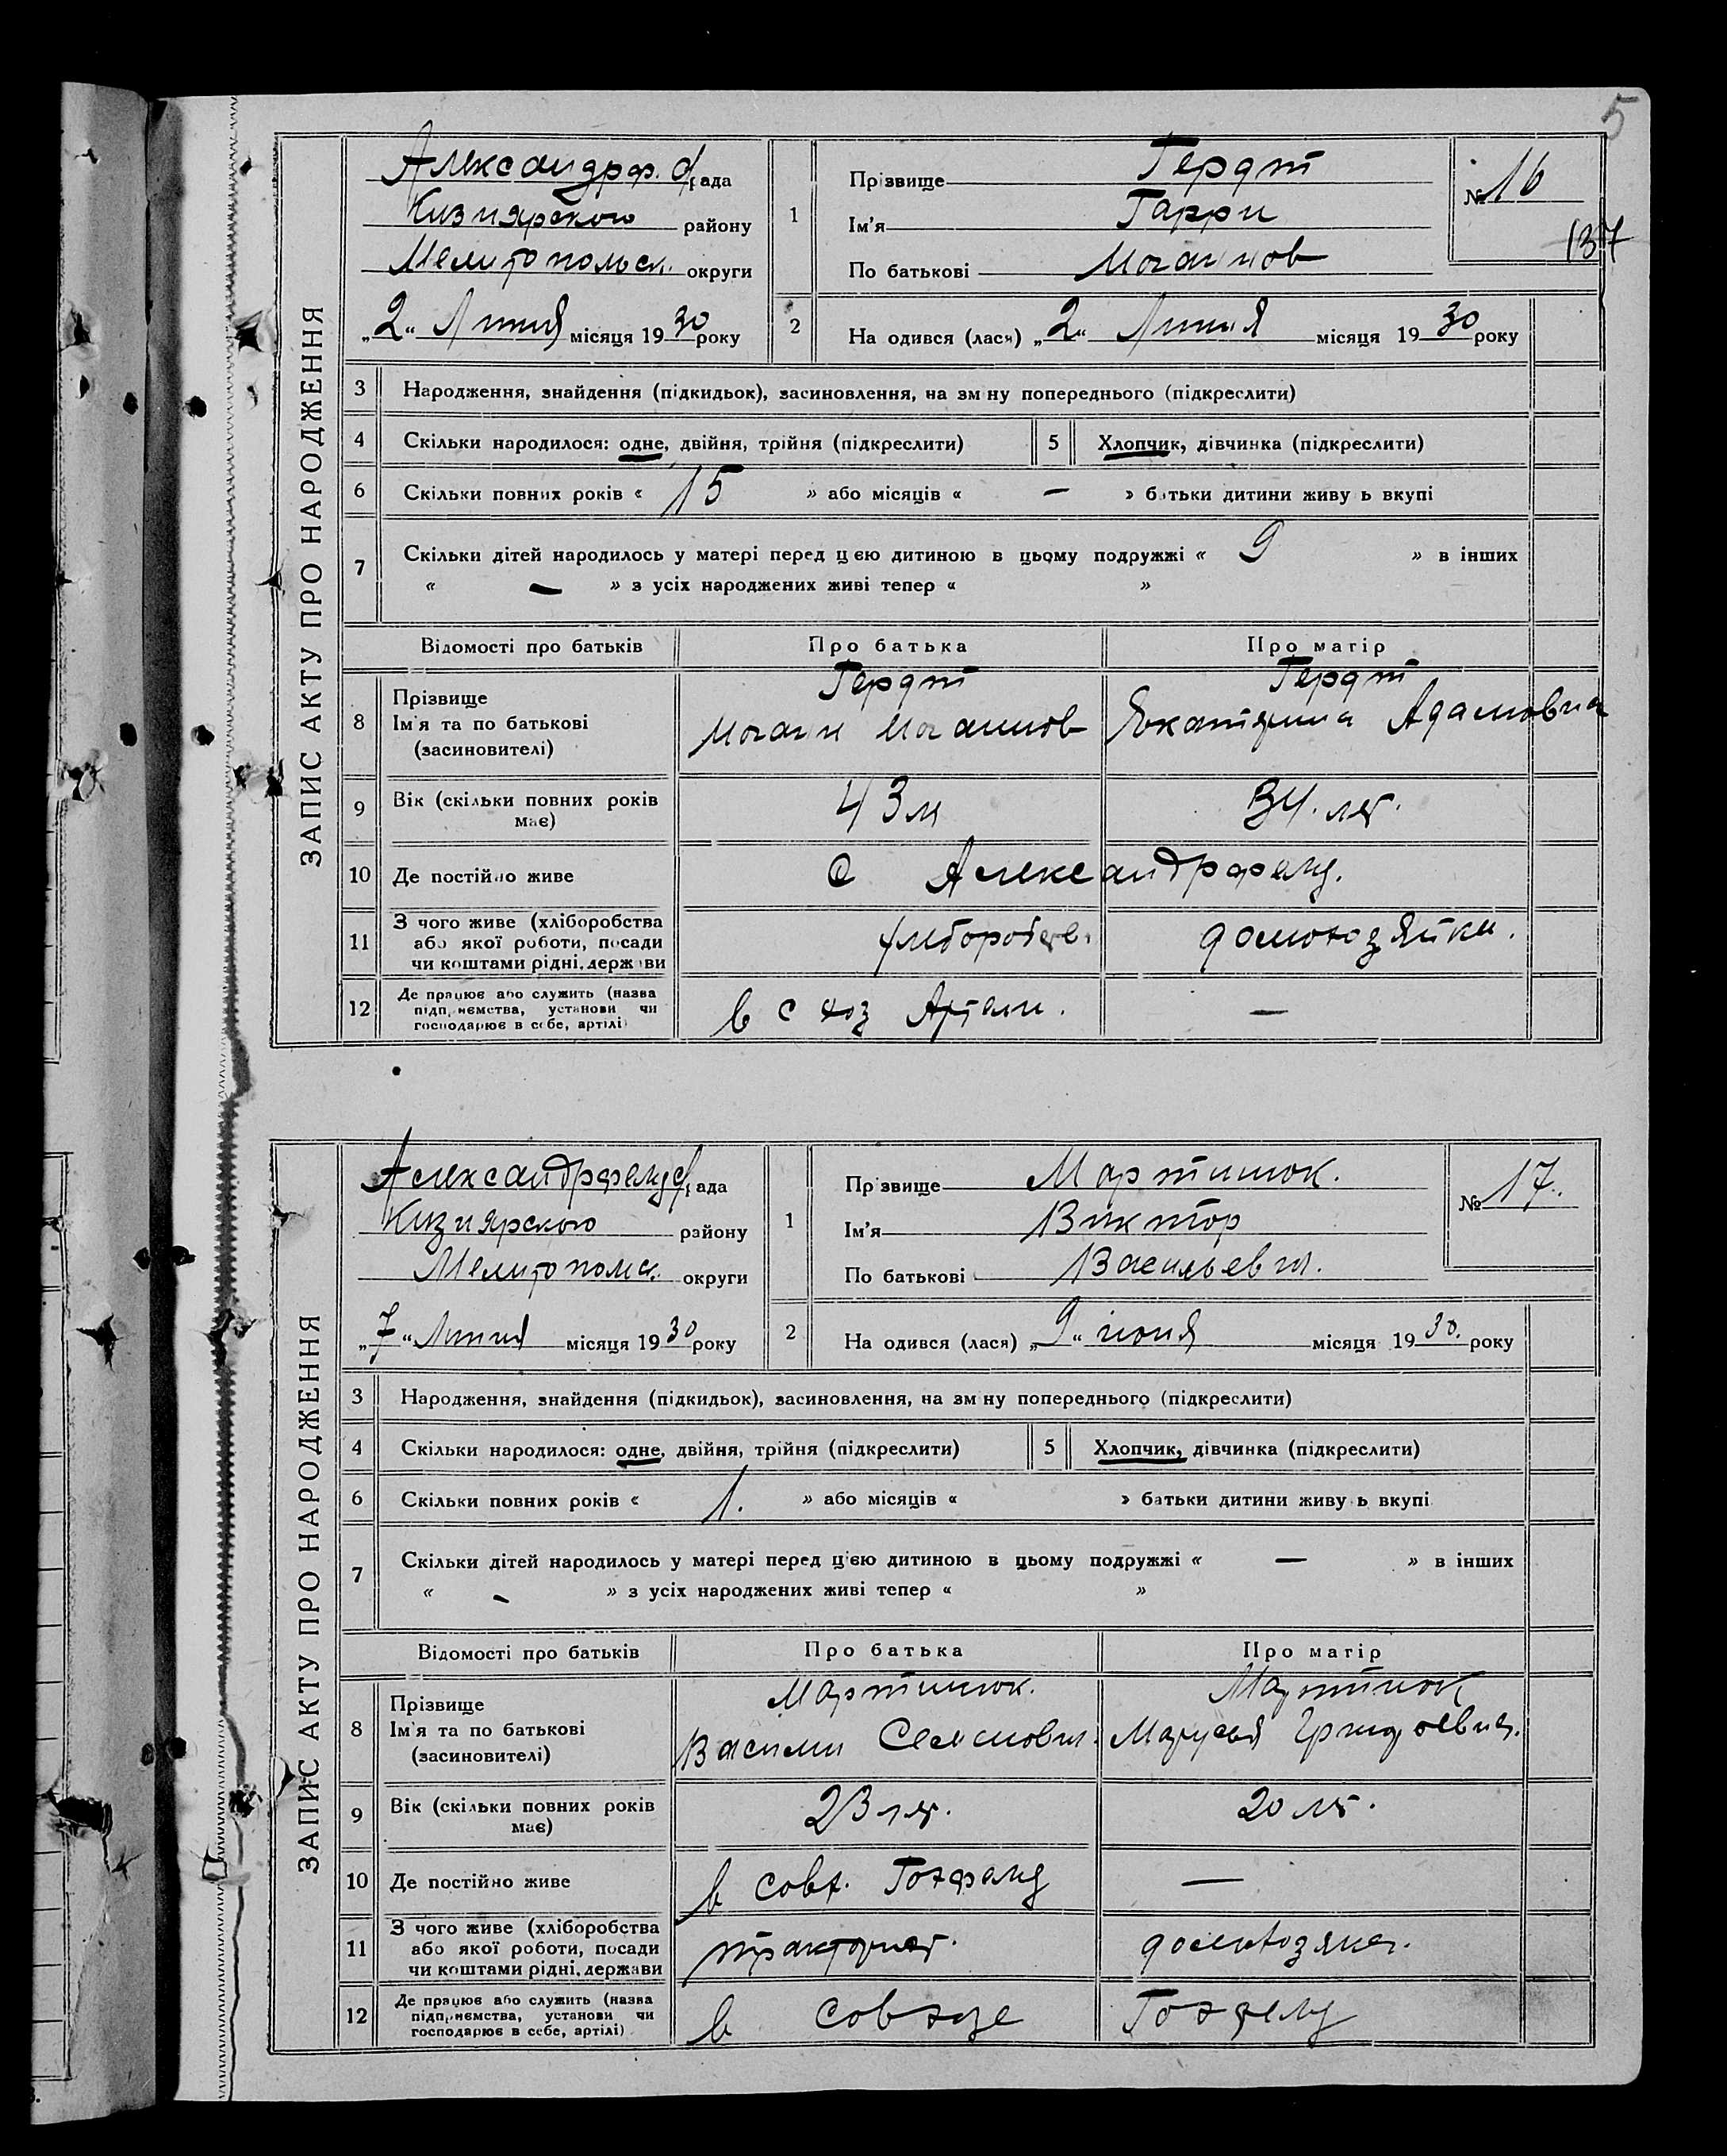 5
ЗАПИС АКТУ ПРО НАРОДЖЕННЯ
Александрф. рада
Кизиярского району
Мелитопольск. округи
„2“ Липня місяця 1930 року
1
Прізвище Гердт
Ім'я Гарри
По батькові Иоганнов
№ 16
137
2
На одився (лася) „2“ Липня місяця 1930 року
3 Народження, знайдення (підкидьок), засиновлення, на зм ну попереднього (підкреслити)
4 Скільки народилося: одне, двійня, трійня (підкреслити) 5 Хлопчик, дівчинка (підкреслити)
6 Скільки повних років « 15 » або місяців « — » батьки дитини живу ь вкупі
7 Скільки дітей народилось у матері перед цією дитиною в цьому подружжі « 9 » в інших
« — » з усіх народжених живі тепер « »
Відомості про батьків Про батька Про матір
8 Прізвище Гердт Гердт
Ім'я та по батькові Иоганн Иоганнов Екатерина Адамовна
(засиновителі)
9 Вік (скільки повних років має) 43 л 34. лет.
10 Де постійно живе с Александрфельд.
11 З чого живе (хліборобства або якої роботи, посади чи коштами рідні, держави домохозяйка.
12 Де працює або служить (назва підприємства, установи чи господарює в себе, артілі) в с хоз Артели. —
ЗАПИС АКТУ ПРО НАРОДЖЕННЯ
Александрфельд рада
Кизиярского району
Мелитопольск. округи
„7“ Липня місяця 1930 року
1
Пр звище Мартинюк.
Ім'я Виктор
По батькові Васильевич.
№ 17.
2
На одився (лася) „9“ июня місяця 1930. року
3 Народження, знайдення (підкидьок), засиновлення, на зм ну попереднього (підкреслити)
4 Скільки народилося: одне, двійня, трійня (підкреслити) 5 Хлопчик, дівчинка (підкреслити)
6 Скільки повних років « 1. » або місяців « » батьки дитини живу ь вкупі
7 Скільки дітей народилось у матері перед цією дитиною в цьому подружжі « — » в інших
« - » з усіх народжених живі тепер « »
Відомості про батьків Про батька Про матір
8 Прізвище Мартинюк. Мартинюк
Ім'я та по батькові Василий Семенович. Маруся
(засиновителі)
9 Вік (скільки повних років має) 23 лет. 20 лет.
10 Де постійно живе в совх. Готфельд —
11 З чого живе (хліборобства або якої роботи, посади чи коштами рідні, держави тракторист. домохозяйка.
12 Де працює або служить (назва підприємства, установи чи господарює в себе, артілі) в совхозе Готфельд